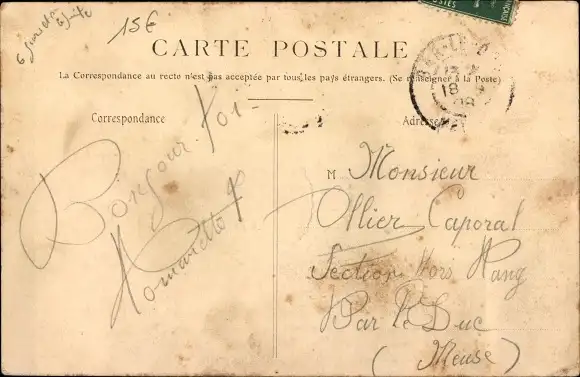 15€
POSTES
CARTE POSTALE
La Correspondance au recto n'est pas acceptée par tous les pays étrangers. (Se renseigner à la Poste)
BAR-LE-
18
Correspondance
Adresse
Bonjour
M Monsieur
Ollier Caporal
Section Hors Rang
Bar le Duc
(Meuse)